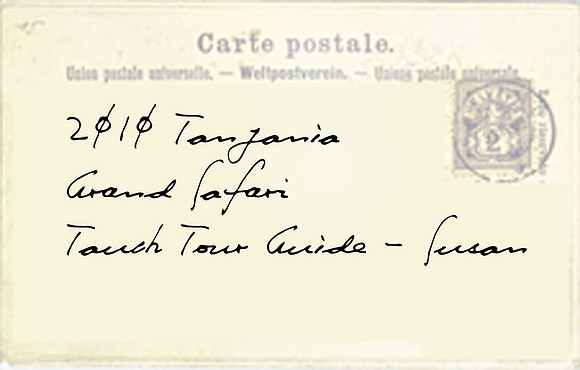 Carte postale.
Union postale universelle. — Weltpostverein. — Unione postale universale.
2010 Tanzania
Grand Safari
Tauck Tour Guide - Susan
HELVETIA
2